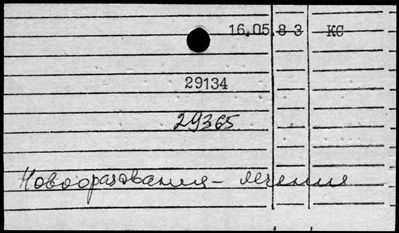 16.05.83 КС
29134
29365
Новообразования - лечения